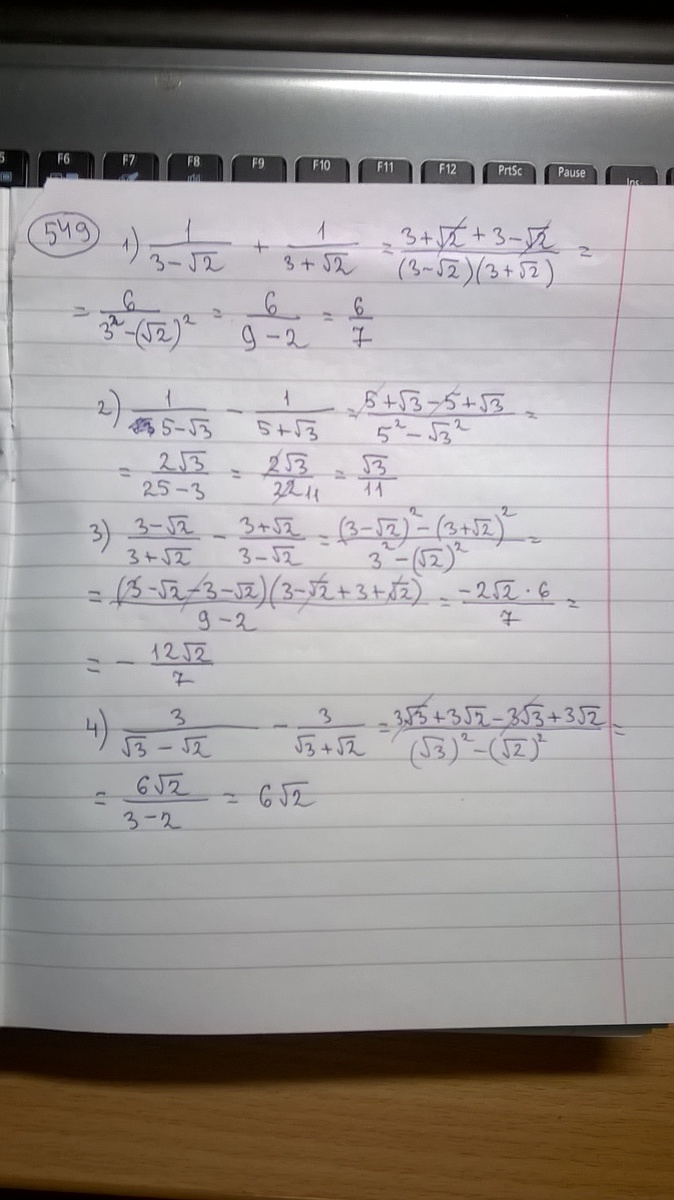 5 F6 F7 F8 F9 F10 F11 F12 PrtSc Pause Ins
549 1) 1/(3-√2) + 1/(3+√2) = (3+√2+3-√2)/((3-√2)(3+√2)) =
= 6/(3²-(√2)²) = 6/(9-2) = 6/7
2) 1/(5-√3) - 1/(5+√3) = (5+√3-5+√3)/(5²-√3²) =
= 2√3/(25-3) = 2√3/22 11 = √3/11
3) (3-√2)/(3+√2) - (3+√2)/(3-√2) = ((3-√2)²-(3+√2)²)/(3²-(√2)²) =
= ((3-√2-3-√2)(3-√2+3+√2))/(9-2) = (-2√2·6)/7 =
= - 12√2/7
4) 3/(√3-√2) - 3/(√3+√2) = (3√3+3√2-3√3+3√2)/((√3)²-(√2)²) =
= 6√2/(3-2) = 6√2